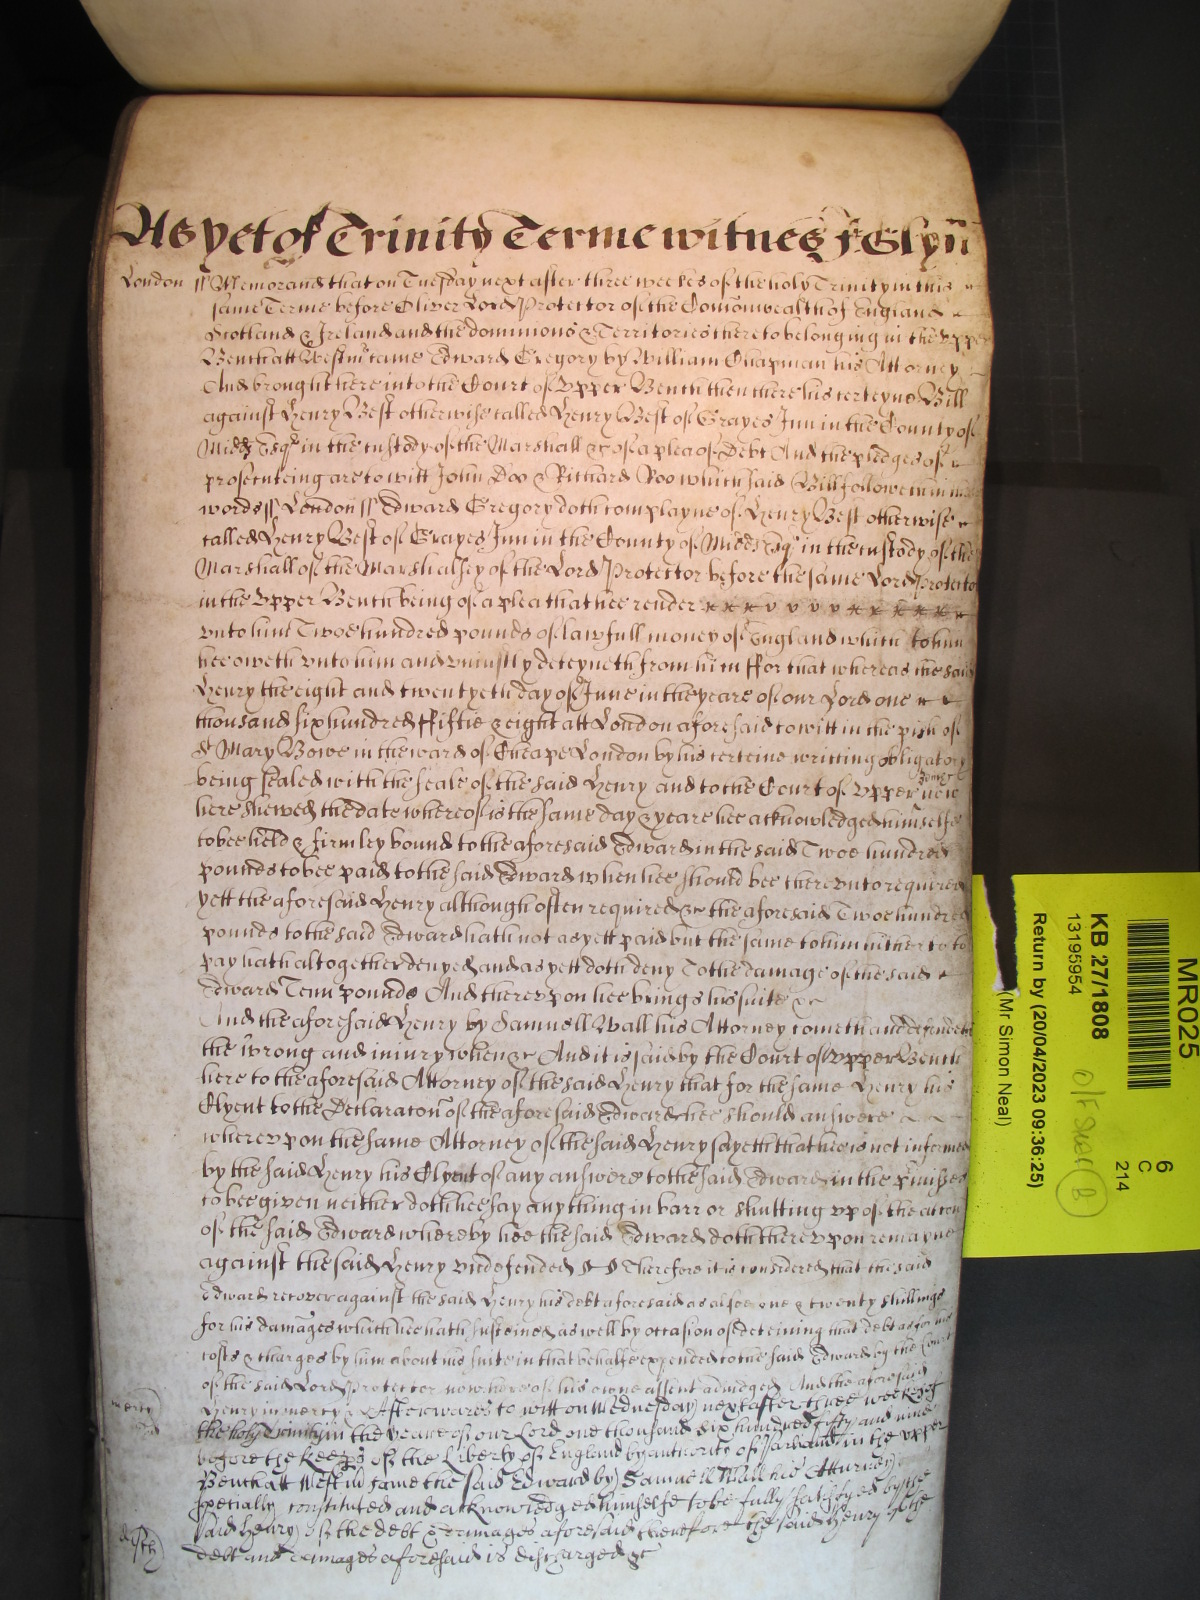 As yet of Trinity Terme witnes J Glynn
London ss Memorand that on Tuesday next after three weekes of the holy Trinity in this
same Terme before Oliver Lord Protector of the Comonwealth of England
Scotland & Ireland and the dominions & Territories thereto belonging in the upper
Bench att Westmr came Edward Gregory by William Chapman his Attorney
And brought here into the Court of upper Bench then there his certeyne Bill
against Henry Best otherwise called Henry Best of Grayes Inn in the County of
Midd Esqr in the custody of the Marshall &c of a plea of Debt And the pledges of
prosecuteing are to witt John Doo & Richard Roo which said Bill followeth in these
words ss London ss Edward Gregory doth complayne of Henry Best otherwise
called Henry Best of Grayes Inn in the County of Midd Esqr in the custody of the
Marshall of the Marshalsey of the Lord Protector before the same Lord Protector
in the Upper Bench being of a plea that hee render
unto him Twoe hundred pounds of lawfull money of England which to him
hee oweth unto him and uniustly deteyneth from him ffor that whereas the said
Henry the eight and twentyeth day of June in the yeare of our Lord one
thousand six hundred ffiftie & eight att London aforesaid to witt in the pish of
St Mary Bowe in the ward of Cheape London by his certeine writting obligatory
being sealed with the seale of the said Henry and to the Court of upper Bench now
here shewed the date whereof is the same day & yeare hee acknowledged himselfe
to bee held & firmley bound to the aforesaid Edward in the said Twoe hundred
pounds to bee paid to the said Edward when hee should bee thereunto required
yett the aforesaid Henry although often required &c the aforesaid Twoe hundred
pounds to the said Edward hath not as yett paid but the same to him hitherto to
pay hath altogether denyed and as yett doth deny To the damage of the said
Edward Tenn pounds And thereupon hee brings his suite &c
And the aforesaid Henry by Samuell Wall his Attorney cometh and defendeth
the wrong and iniury when &c And it is said by the Court of upper Bench
here to the aforesaid Attorney of the said Henry that for the same Henry his
Clyent to the Declaraton of the aforesaid Edward hee should answere
whereupon the same Attorney of the said Henry sayeth that hee is not informed
by the said Henry his Clyent of any answere to the said Edward in the pmisses
to bee given neither doth hee say any thing in barr or shutting up of the accon
of the said Edward whereby hee the said Edward doth thereupon remayne
against the said Henry undefended &c Therefore it is considered that the said
Edward recover against the said Henry his debt aforesaid as alsoe one & twenty shillings
for his damages which hee hath susteined as well by occasion of deteining that debt as for his
costs & charges by him about his suite in that behalfe expended to the said Edward by the Court
of the said Lord Protector now here of his owne assent adiudged And the aforesaid
Henry in mercy &c Afterwards to witt on Wednesday next after three weekes of
mercy
the holy Trinity in the yeare of our Lord one thousand six hundred fifty and nine
before the keeps of the Liberty of England by authoritie of Parliamt in the upper
Bench att Westmr came the said Edward by Samuell Wall his Atturney
specially constituted and acknowledged himselfe to be fully satisfyed by the
said Henry of the debt & damages aforesaid therefore the said Henry of the
debt and damages aforesaid is discharged &c
MR025
6
C
214
KB 27/1808
13195954
Return by (20/04/2023 09:36:25)
(Mr Simon Neal)